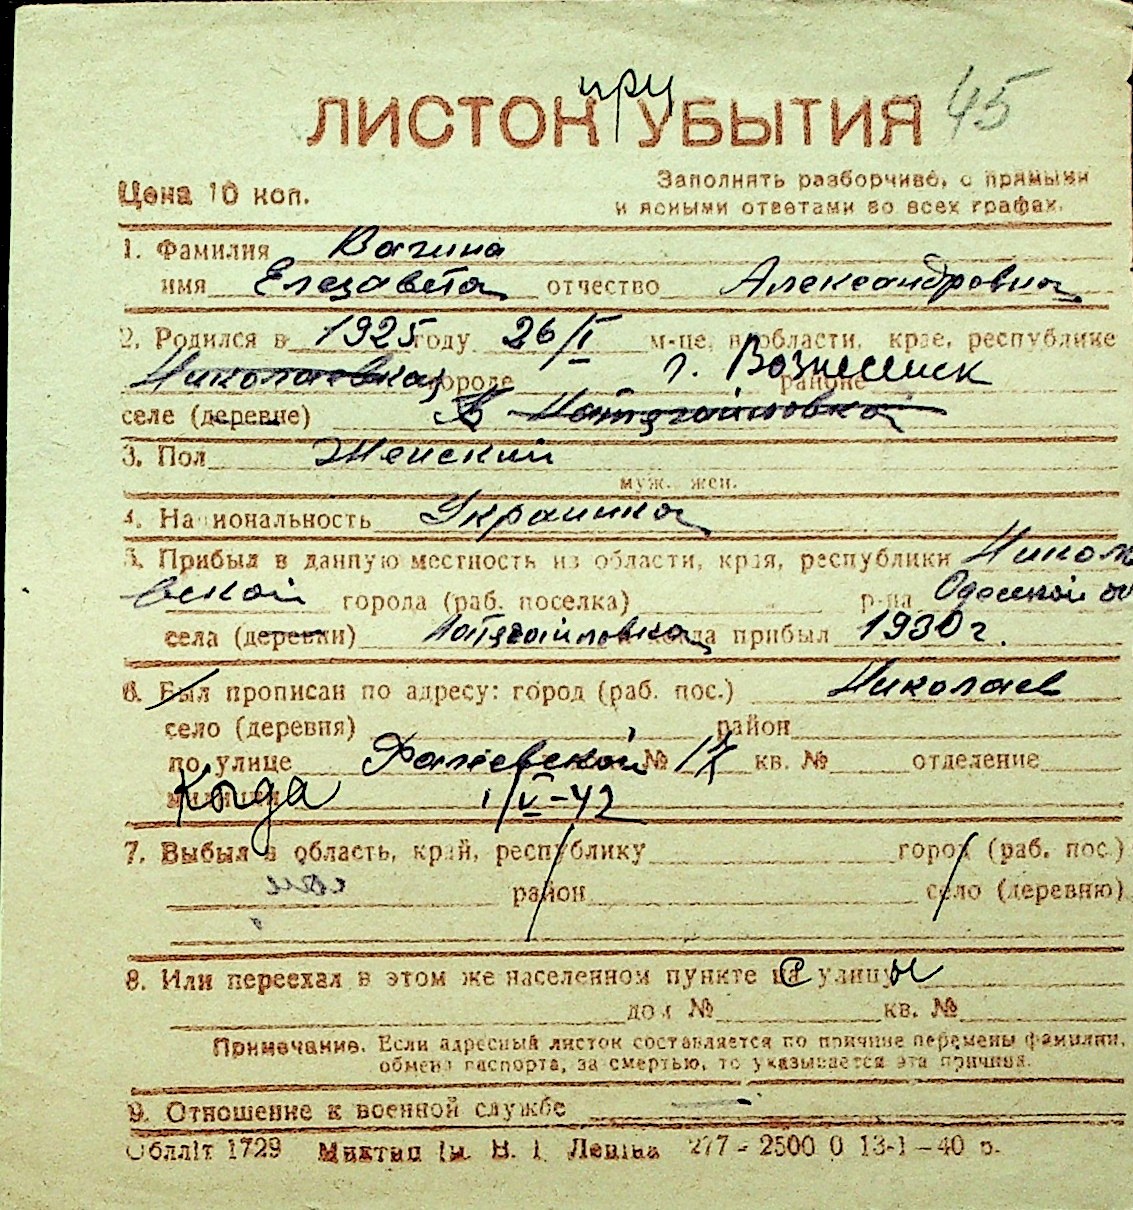 при
ЛИСТОК УБЫТИЯ 45
Цена 10 коп.
Заполнять разборчиво, с прямыми
и ясными ответами во всех графах.
1. Фамилия Вагина
имя Елезавета отчество Александровна
2. Родился в 1925 году 26/I м-це, в области, крае, республике
Николаевка городе г. Вознесенск районе
селе (деревне)
3. Пол Женский
муж. жен.
4. Национальность Украинка
5. Прибыл в данную местность из области, края, республики Никола
евской города (раб. поселка) р-на Одесской об
села (деревни) когда прибыл 1930 г.
6. Был прописан по адресу: город (раб. пос.) Николаев
село (деревня) район
по улице Фалеевской № 17 кв. № отделение
милиции Когда 1/V-42
7. Выбыл в область, край, республику город (раб. пос.)
район село (деревню)
8. Или переехал в этом же населенном пункте на с улицу ы
дом № кв. №
Примечание. Если адресный листок составляется по причине перемены фамилии,
обмена паспорта, за смертью, то указывается эта причина.
9. Отношение к военной службе —
Облліт 1729 Миктип ім. В. І. Леніна 277 - 2500 0 13-1-40 р.